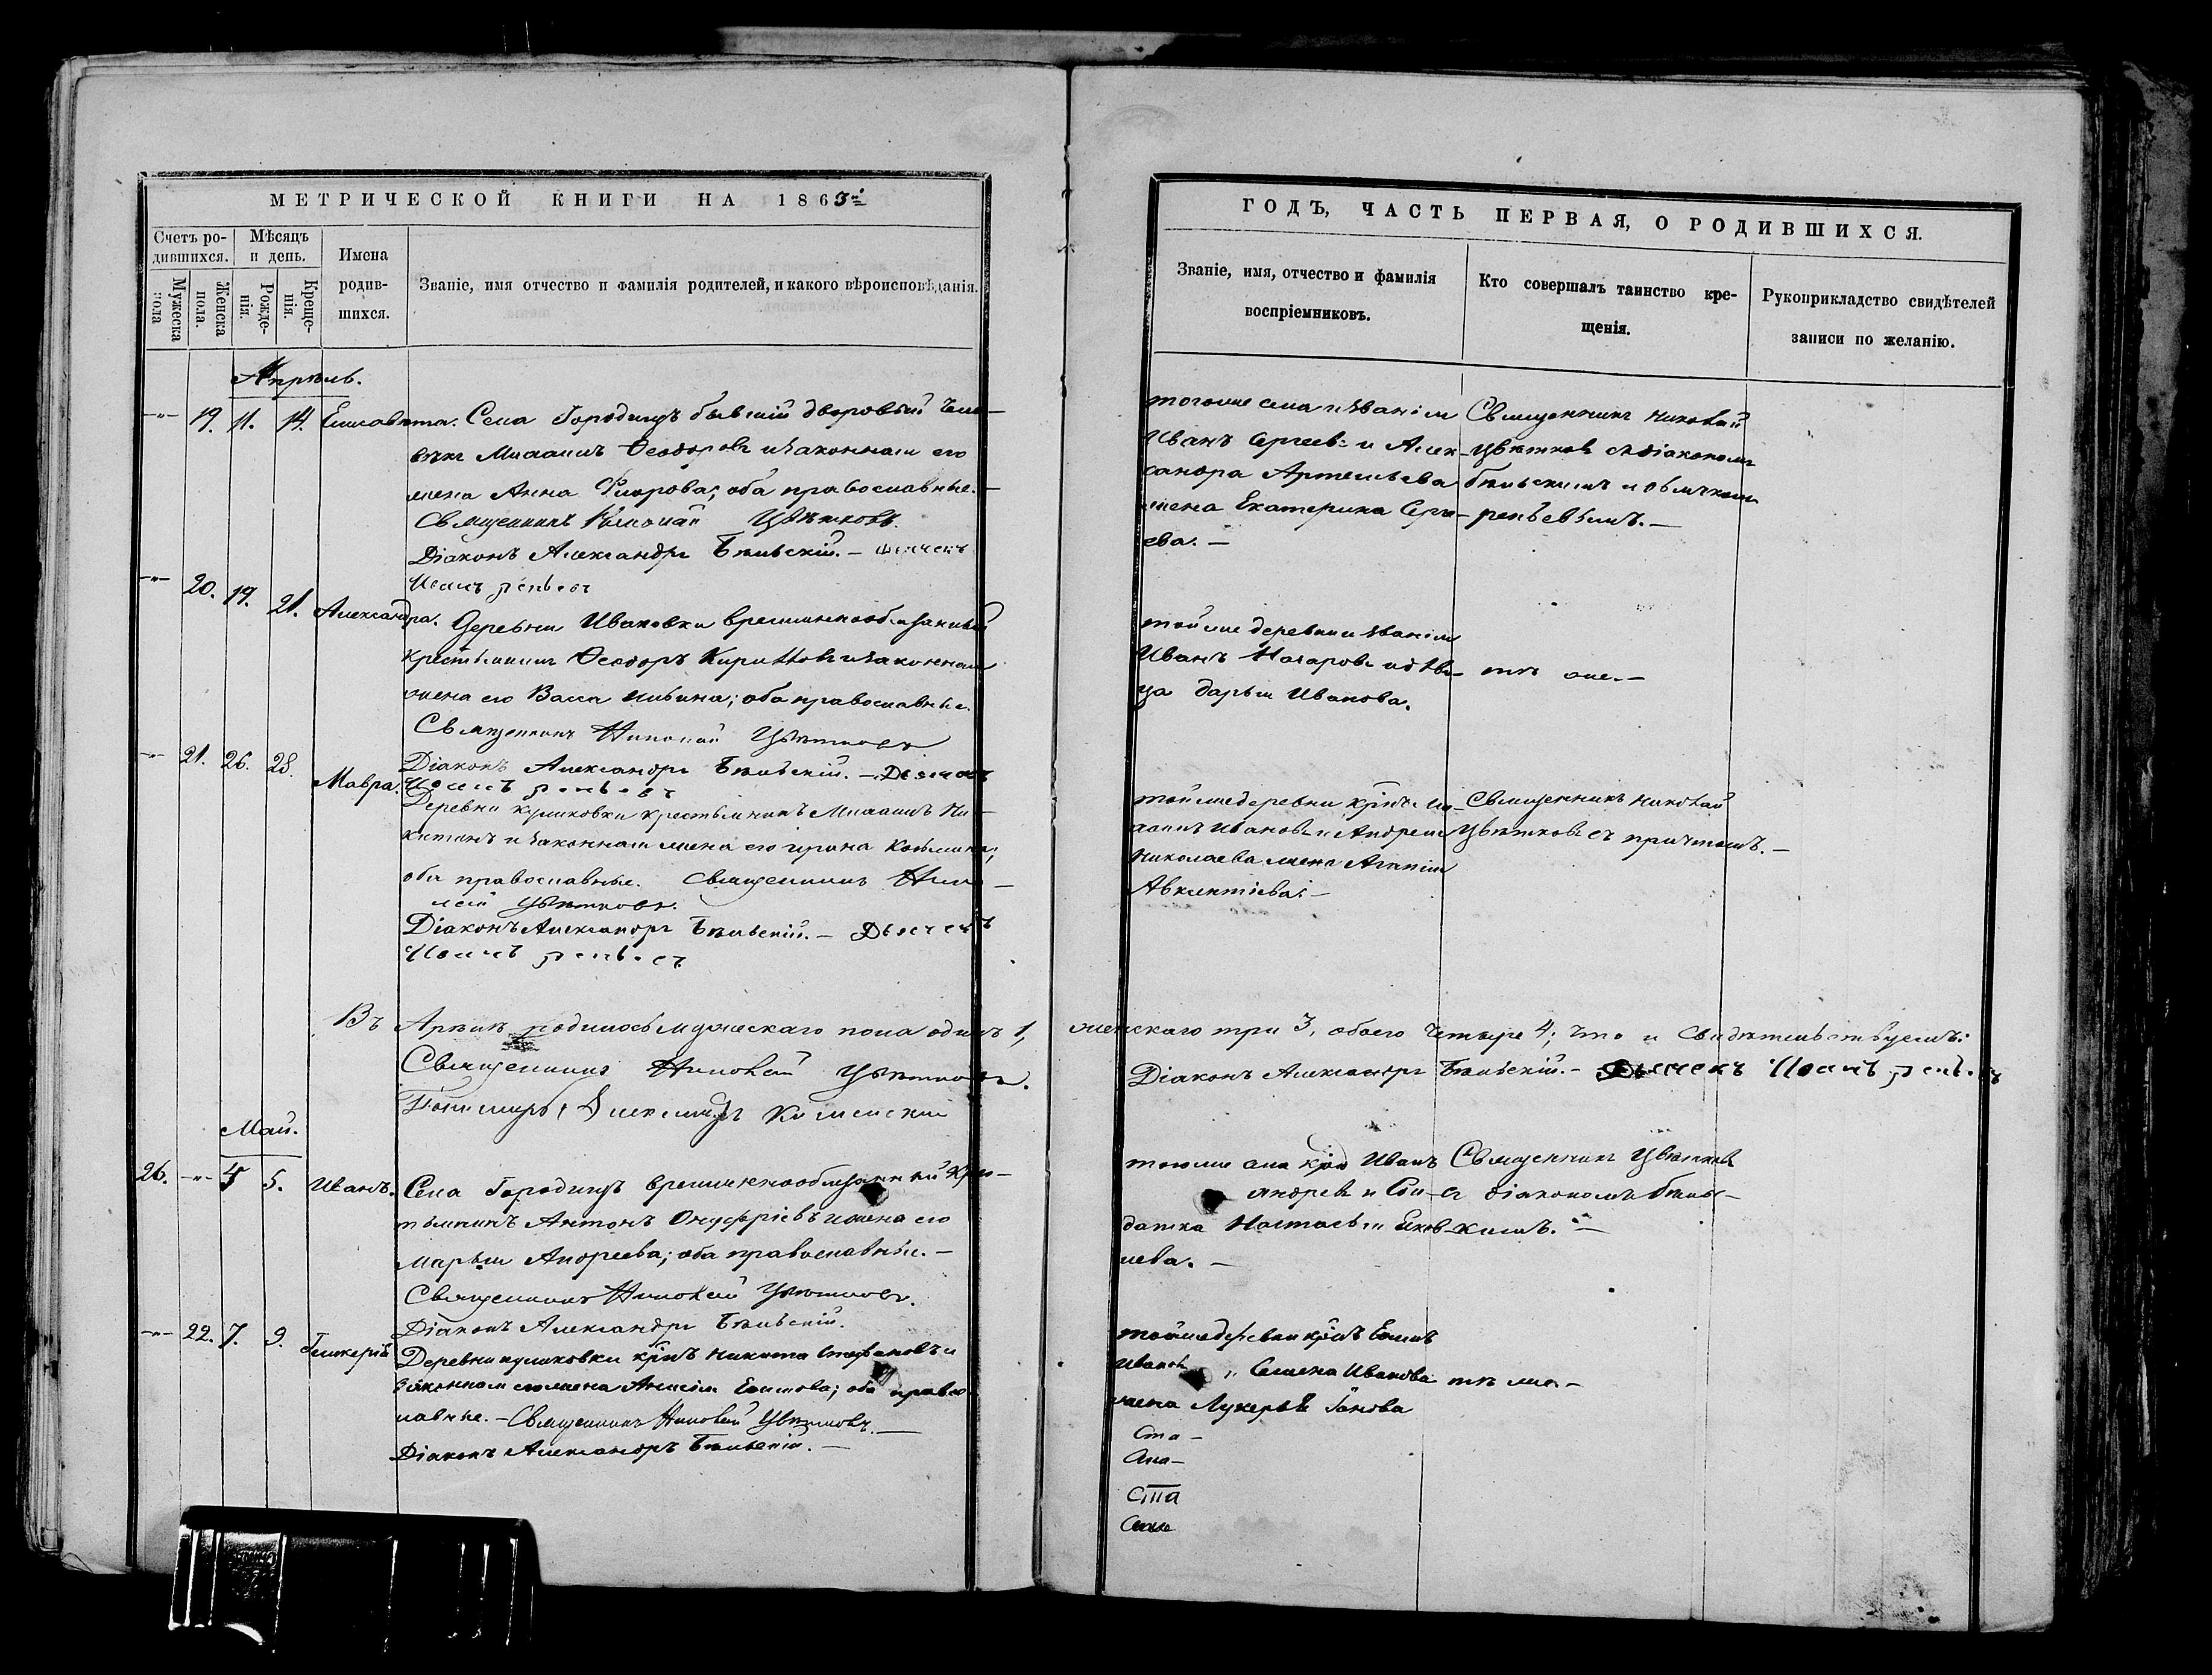 МЕТРИЧЕСКОЙ КНИГИ НА 1863й
Счетъ родившихся.
Мѣсяцъ и день.
Имена родившихся.
Званіе, имя отчество и фамилія родителей, и какого вѣроисповѣданія.
Мужеска пола
Женска пола.
Рожденія.
Крещенія.
Апрѣль.
19. 11. 14. Елисавета. Села Городищъ бывшій дворовый чело-
вѣкъ Михаилъ Ѳеодоровъ и законная его
жена Анна Флорова; оба православные. —
Священникъ Николай Цвѣтковъ.
Діаконъ Александръ Бѣльскій. —
20. 19. 21. Александра. Деревни Ивановки временнообязанный
крестьянинъ Ѳеодоръ Кирилловъ и законная
жена его Васса Ильина; оба православные.
Священникъ Николай Цвѣтковъ
21. 26. 28. Мавра.
Діаконъ Александръ Бѣльскій. — Дьячекъ
Деревни Куликовки крестьянинъ Михаилъ Ни-
китинъ и законная жена его Ирина Козьмина;
оба православные. Священникъ Нико-
лай Цвѣтковъ.
Діаконъ Александръ Бѣльскій. — Дьячекъ
Въ Апрѣлѣ родилось мужескаго пола одинъ 1,
Священникъ Николай Цвѣтковъ.
Май.
26. 4 5. Иванъ. Села Городищъ временнообязанный крес-
тьянинъ Антонъ Онуфріевъ и жена его
Марья Андреева; оба православные. —
Священникъ Николай Цвѣтковъ.
Діаконъ Александръ Бѣльскій.
22. 7. 9. Гликерія
Деревни Куликовки крнъ Никита Стефановъ и
законная его жена Анисія Еоимова; оба право-
лавные. — Священникъ Николай Цвѣтковъ. —
Діаконъ Александръ Бѣльскій. —
ГОДЪ, ЧАСТЬ ПЕРВАЯ, О РОДИВШИХСЯ.
Званіе, имя, отчество и фамилія воспріемниковъ.
Кто совершалъ таинство крещенія.
Рукоприкладство свидѣтелей записи по желанію.
тогоже села и званія
Иванъ Сергеевъ и Алек-
сандра Артемьева
жена Екатерина Серге-
ева. —
Священникъ Николай
Цвѣтковъ съ діакономъ
Бѣльскимъ и дьячкомъ
тойже деревни и званія
Иванъ Назаровъ и дѣви-
ца Дарья Иванова.
тѣ же. —
тойже деревни крнъ Ми-
хаилъ Ивановъ и Андрея
Николаева жена Агапія
Авксентіева. —
Священникъ Николай
Цвѣтковъ съ причтомъ. —
женскаго три 3, обоего четыре 4; что и свидѣтельствуемъ:
Діаконъ Александръ Бѣльскій. — Дьячекъ
тогоже села крнъ Иванъ
Андреевъ и Сол-
датка Настасья Яков-
лева. —
Священникъ Цвѣтковъ
съ діакономъ Бѣльс-
кимъ. —
тойже деревни крнъ
Ивановъ и Семена Иванова
жена Лукерья
тѣ же. —
Ста —
Ста